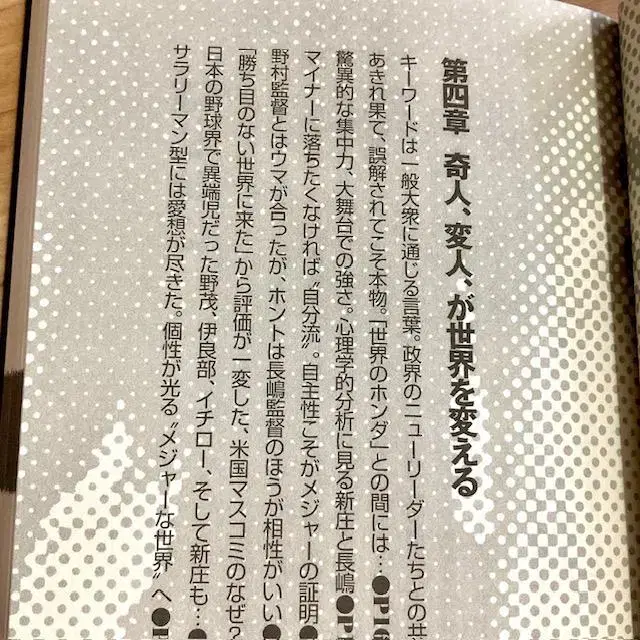 第四章 奇人、変人、が世界を変える
キーワードは一般大衆に通じる言葉。政界のニューリーダーたちとの共
あきれ果て、誤解されてこそ本物。「世界のホンダ」との間には…●PIG
驚異的な集中力、大舞台での強さ。心理学的分析に見る新庄と長嶋●P
マイナーに落ちたくなければ〝自分流〟。自主性こそがメジャーの証明●
野村監督とはウマが合ったが、ホントは長嶋監督のほうが相性がいい●
「勝ち目のない世界に来た」から評価が一変した、米国マスコミのなぜ?
日本の野球界で異端児だった野茂、伊良部、イチロー、そして新庄も…●
サラリーマン型には愛想が尽きた。個性が光る〝メジャーな世界〟へ●